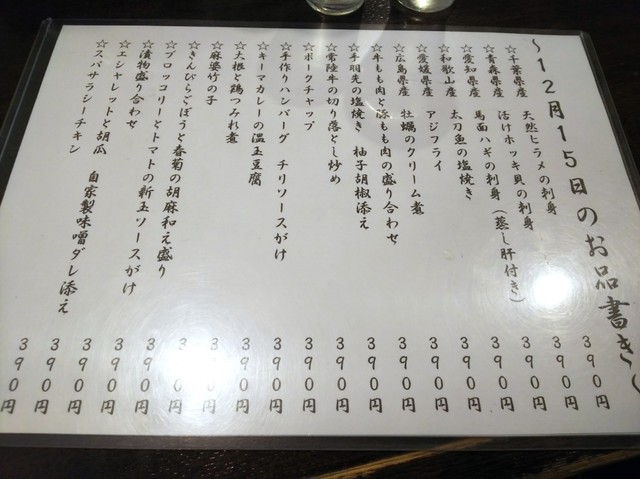 ～12月15日のお品書き～
☆千葉県産 天然ヒラメの刺身 390円
☆青森県産 活けホッキ貝の刺身 390円
☆愛知県産 馬面ハギの刺身（蒸し肝付き） 390円
☆和歌山産 太刀魚の塩焼き 390円
☆愛媛県産 アジフライ 390円
☆広島県産 牡蠣のクリーム煮 390円
☆牛もも肉と豚もも肉の盛り合わせ 390円
☆手羽先の塩焼き 柚子胡椒添え 390円
☆常陸牛の切り落とし炒め 390円
☆ポークチャップ 390円
☆手作りハンバーグ チリソースがけ 390円
☆キーマカレーの温玉豆腐 390円
☆大根と鶏つみれ煮 390円
☆麻婆竹の子 390円
☆きんぴらごぼうと春菊の胡麻和え盛り 390円
☆ブロッコリーとトマトの新玉ソースがけ 390円
☆漬物盛り合わせ 390円
☆エシャレットと胡瓜 自家製味噌ダレ添え 390円
☆スパサラシーチキン 390円